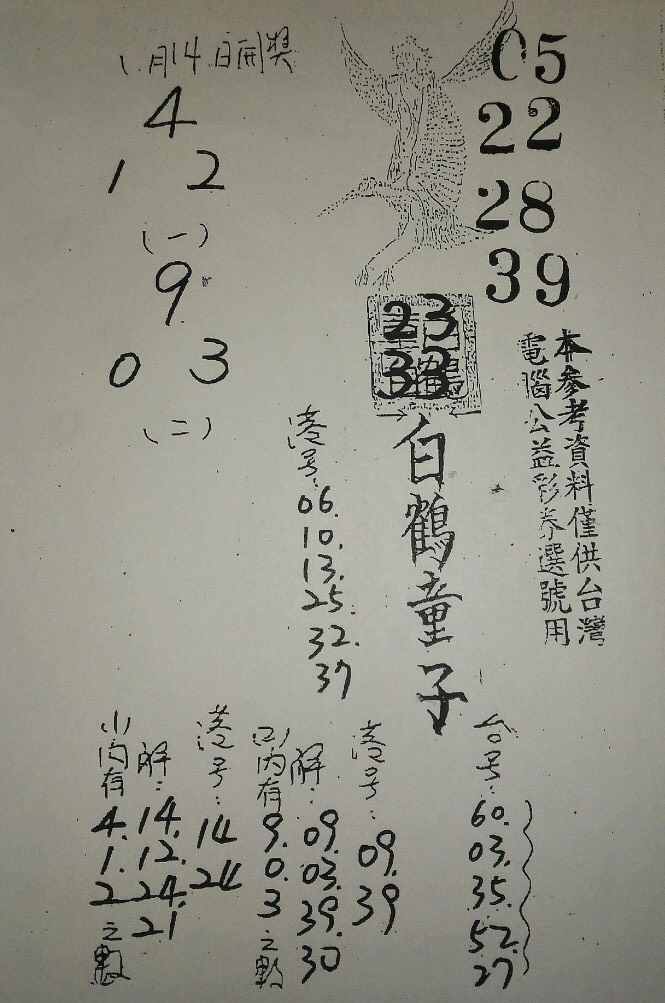 1月14日開獎
4
1 2
(一)
9
0 3
(二)
05
22
28
39
23
33
本參考資料僅供台灣
電腦公益彩券選號用
白鶴童子
港号:
06.
10.
13.
25.
32.
37
(1)內有
4.
1.
2
之數
解:
14.
12.
24.
21
港号:
14
24
(2)內有
9.
0.
3
之數
解:
09.
03.
39.
30
港号:
09.
39
台号:
60.
03.
35.
52.
27